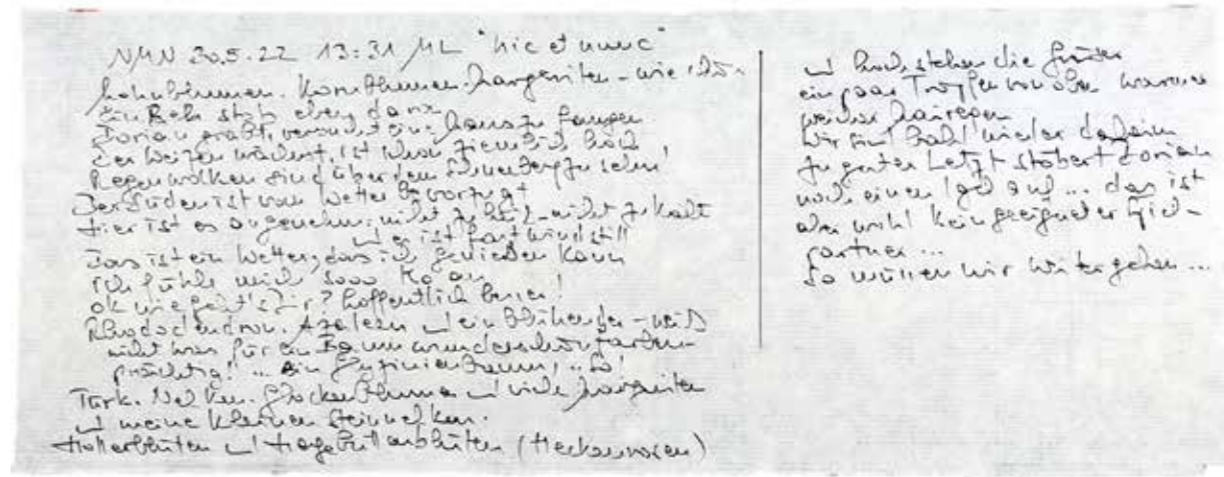 NMN 30.5.22 13:31 ML "hic et nunc"
Mohnblumen. Kornblumen. Margeriten - wie schön
Ein Reh stob eben davon
Dorian gräbt, versucht eine Maus zu fangen
Der Weizen wächst, ist schon ziemlich hoch
Regenwolken sind über dem zu sehn!
Der Süden ist vom Wetter bevorzugt
Hier ist es angenehm, nicht zu heiß - nicht zu kalt
es ist fast windstill
Das ist ein Wetter, das ich genießen kann
Ich fühle mich sooo ko an
ok wie geht's Dir? Hoffentlich besser!
Rhododendron. Azaleen ein blühender - weiß
nicht was für ein Baum wunderschön farben-
prächtig! ... ein
Türk. Nelken. Glockenblumen viele Margeriten
meine kleinen Steinnelken.
Hollerblüten Hagebuttenblüten (Heckenrosen)
hoch stehen die Gräser
ein paar Tropfen von oben warmer
weicher Mairegen
Wir sind bald wieder daheim
Zu guter Letzt stöbert Dorian
noch einen Igel auf ... das ist
aber wohl kein geeigneter Spiel-
partner ...
So müssen wir weitergehen ...